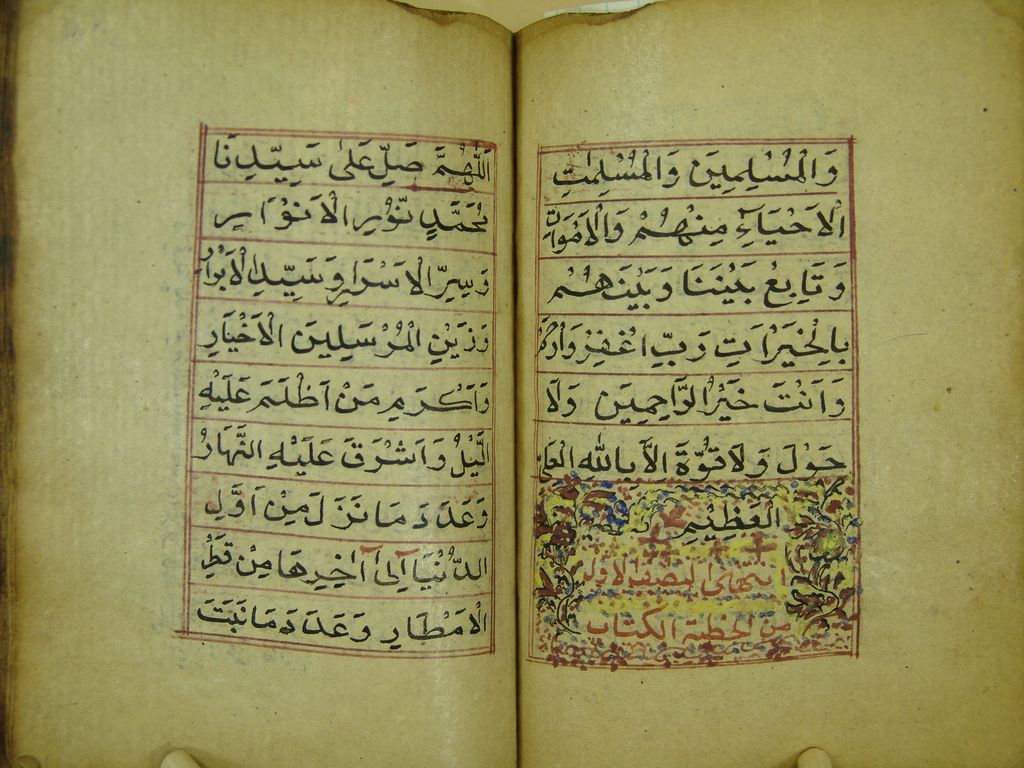 وَالْمُسْلِمِينَ وَالْمُسْلِمٰتِ
الْاَحْيَآءِ مِنْهُمْ وَالْاَمْوَاتِ
وَتَابِعْ بَيْنَنَا وَبَيْنَهُمْ
بِالْخَيْرَاتِ رَبِّ اغْفِرْ وَارْحَمْ
وَاَنْتَ خَيْرُ الرَّاحِمِينَ وَلَا
حَوْلَ وَلَا قُوَّةَ اِلَّا بِاللّٰهِ الْعَلِيِّ
الْعَظِيْمِ
انتهاى النصف الاولى
من الكتاب
اَللّٰهُمَّ صَلِّ عَلٰى سَيِّدِنَا
مُحَمَّدٍ نُّوْرِ الْاَنْوَارِ
وَسِرِّ الْاَسْرَارِ وَسَيِّدِ الْاَبْرَارِ
وَزَيْنِ الْمُرْسَلِينَ الْاَخْيَارِ
وَاَكْرَمِ مَنْ اَظْلَمَ عَلَيْهِ
الَّيْلُ وَاَشْرَقَ عَلَيْهِ النَّهَارُ
وَعَدَدَ مَا نَزَلَ مِنْ اَوَّلِ
الدُّنْيَا اِلٰى آخِرِهَا مِنْ قَطْرِ
الْاَمْطَارِ وَعَدَدَ مَا نَبَتَ